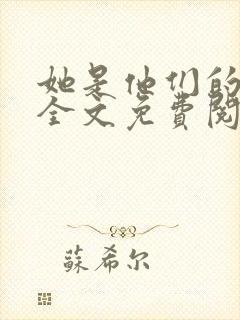 她是他们的
全文免費閱
蘇希尔